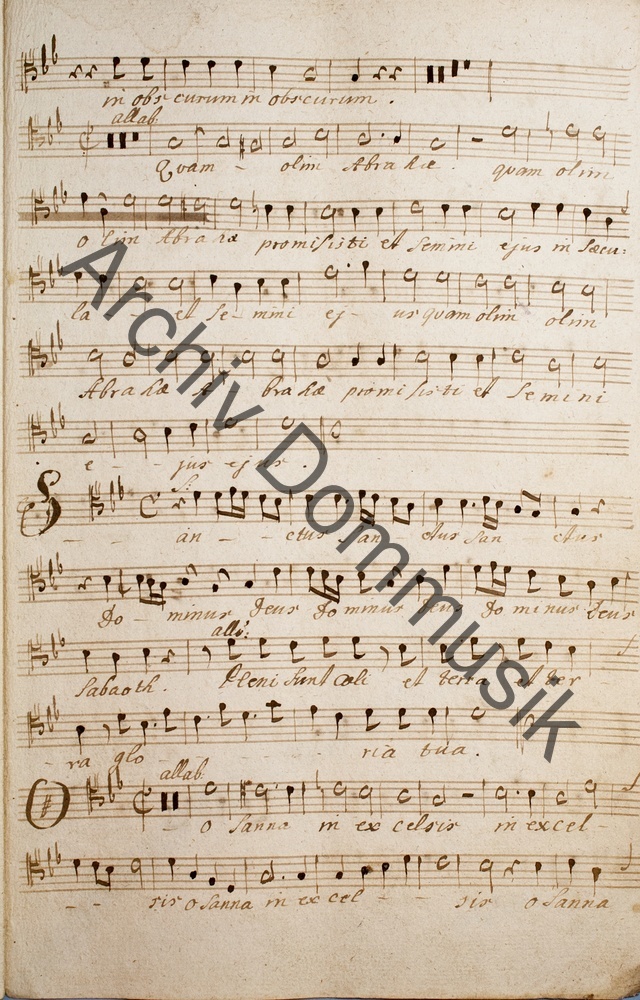 in obscurum in obscurum.
allab.
Quam - olim Abrahæ. quam olim
olim Abrahæ promisisti et semini ejus in sæcu:
la - et se - mini ej - us quam olim olim
Abrahæ A brahæ promisisti et semini
e - - jus ejus.
S:
S
an - - ctus San - ctus San - ctus
Do - minus Deus Dominus Deus Dominus Deus
allº:
Sabaoth. Pleni sunt cœli et terra et ter -
ra glo - - - - - ria tua.
allab.
O
o Sanna in excelsis in excel -
- - sis o Sanna in excel - - sis o Sanna
Archiv Dommusik